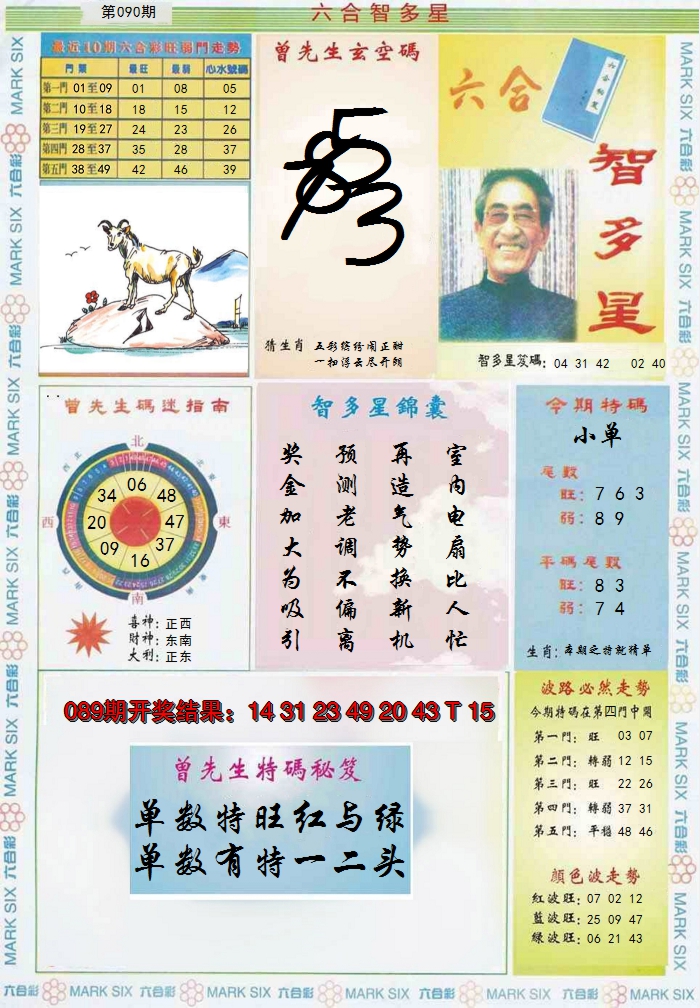 第090期
六合智多星
最近10期六合彩旺弱門走勢
門票 最旺 最弱 心水號碼
第一門 01至09 01 08 05
第二門 10至18 18 15 12
第三門 19至27 24 23 26
第四門 28至37 35 28 37
第五門 38至49 42 46 39
曾先生玄空碼
猜生肖 五彩缤纷闹正酣
一扫浮云尽开朗
六合
智多星
智多星笈碼: 04 31 42 02 40
曾先生碼迷指南
北
西
東
南
06
48
47
37
16
09
20
34
喜神: 正西
財神: 东南
大利: 正东
智多星錦囊
室内电扇比人忙
再造气势换新机
预测老调不偏离
奖金加大为吸引
今期特碼
小单
尾數
旺: 7 6 3
弱: 8 9
平碼尾數
旺: 8 3
弱: 7 4
生肖: 本期之特就猜单
089期开奖结果: 14 31 23 49 20 43 T 15
曾先生特碼秘笈
单数特旺红与绿
单数有特一二头
波路必然走勢
今期特碼在第四門中開
第一門: 旺 03 07
第二門: 轉弱 12 15
第三門: 旺 22 26
第四門: 轉弱 37 31
第五門: 平穩 48 46
顏色波走勢
紅波旺: 07 02 12
藍波旺: 25 09 47
綠波旺: 06 21 43
MARK SIX 六合彩